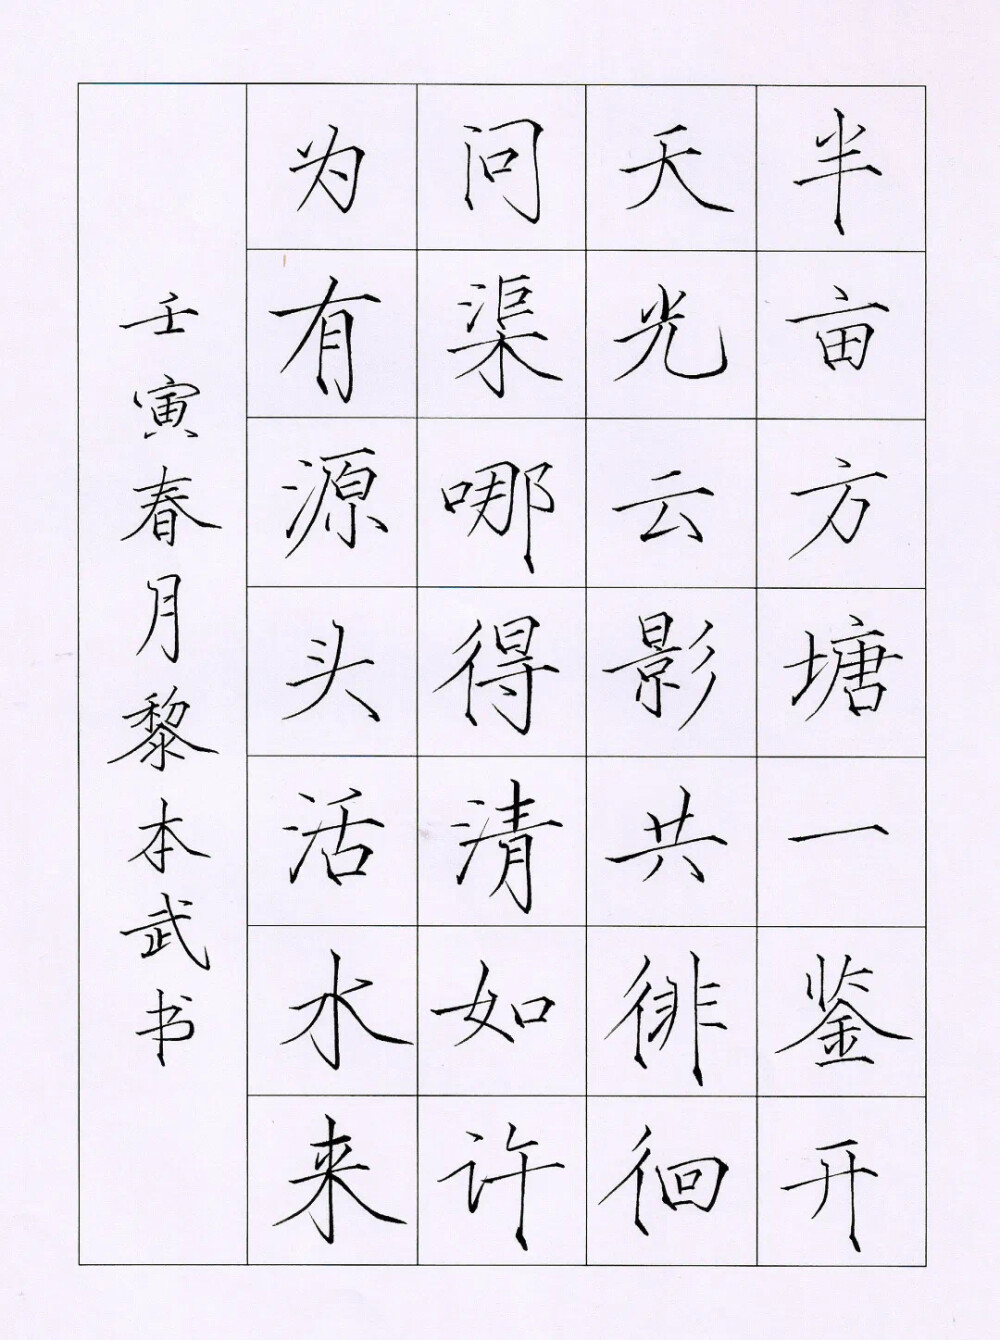 半亩方塘一鉴开
天光云影共徘徊
问渠哪得清如许
为有源头活水来
壬寅春月黎本武书